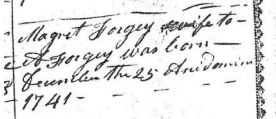 Magret Forgey wife to -
A Forgey was born -
December the 25 Anodomini
1741 -